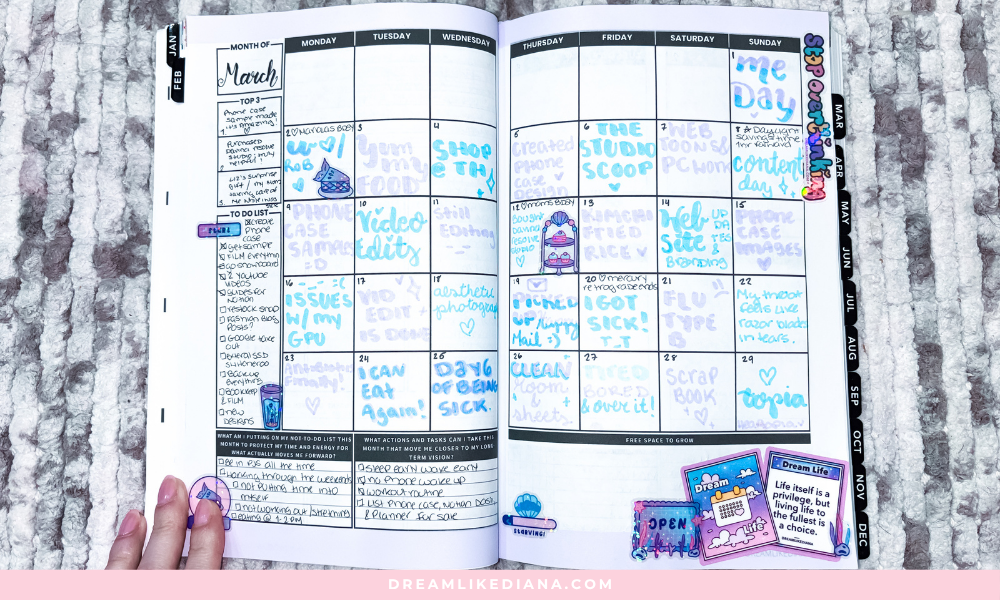 JAN
FEB
MONTH OF
March
TOP 3
Phone case
sample made
it's amazing!
1.
Purchased
Davinci resolve
studio! truly
helpful!
2.
3.
TO DO LIST
create
Phone
case
get sample
FILM everything
Go snowboard
2 Youtube
videos
Guides for
Notion
restock shop
Fashion Blog
Posts?
Google take
out
Backup
everything
Bookkeep
& FILM
new
designs
MONDAY
TUESDAY
WEDNESDAY
THURSDAY
FRIDAY
SATURDAY
SUNDAY
1
me
Day
2
W/
ROB
3
Yum
my
FOOD
4
SHOP
@ TH
5
created
PHONE
case
DESIGN
6
THE
STUDIO
SCOOP
7
WEB
8
Daylight
savings time
1hr forward
content
day
9
PHONE
CASE
SAMPLE
:D
10
Video
Edits
11
still
Editing
12
moms BDAY
Bought
Davinci
resolve
studio
13
KIMCHI
FRIED
RICE
14
Web
Site
UP
DA
TES
Branding
15
PHONE
CASE
IMAGES
16
ISSUES
W/ my
GPU
17
VID
EDIT
IS DONE
18
aesthetic
photography
19
Picked
UP
Mail :)
20
mercury
retrograde ends
I GOT
SICK!
T_T
21
FLU
TYPE
B
22
My throat
feels like
razor blades
in tears.
23
Antibiotics
Finally!
24
I CAN
Eat
Again!
25
DAY 6
OF BEING
SICK.
26
CLEAN
room
&
sheets
27
TIRED
BORED
& over it!
28
SCRAP
BOOK
29
topia
WHAT AM I PUTTING ON MY NOT-TO-DO LIST THIS
MONTH TO PROTECT MY TIME AND ENERGY FOR
WHAT ACTUALLY MOVES ME FORWARD?
Be in PJs all the time
Working through the weekends
not putting time into
myself
not working out/stretching
eating @ 1-2 PM
WHAT ACTIONS AND TASKS CAN I TAKE THIS
MONTH THAT MOVE ME CLOSER TO MY LONG
TERM VISION?
sleep early wake early
no Phone wake up
workout routine
List Phone case, Notion Dash,
& Planner for sale
FREE SPACE TO GROW
STARVING!
OPEN
Dream
Life
Dream Life
Life itself is a
privilege, but
living life to
the fullest is
a choice.
STOP overthinking
MAR
APR
MAY
JUN
JUL
AUG
SEP
OCT
NOV
DEC
DREAMLIKEDIANA.COM